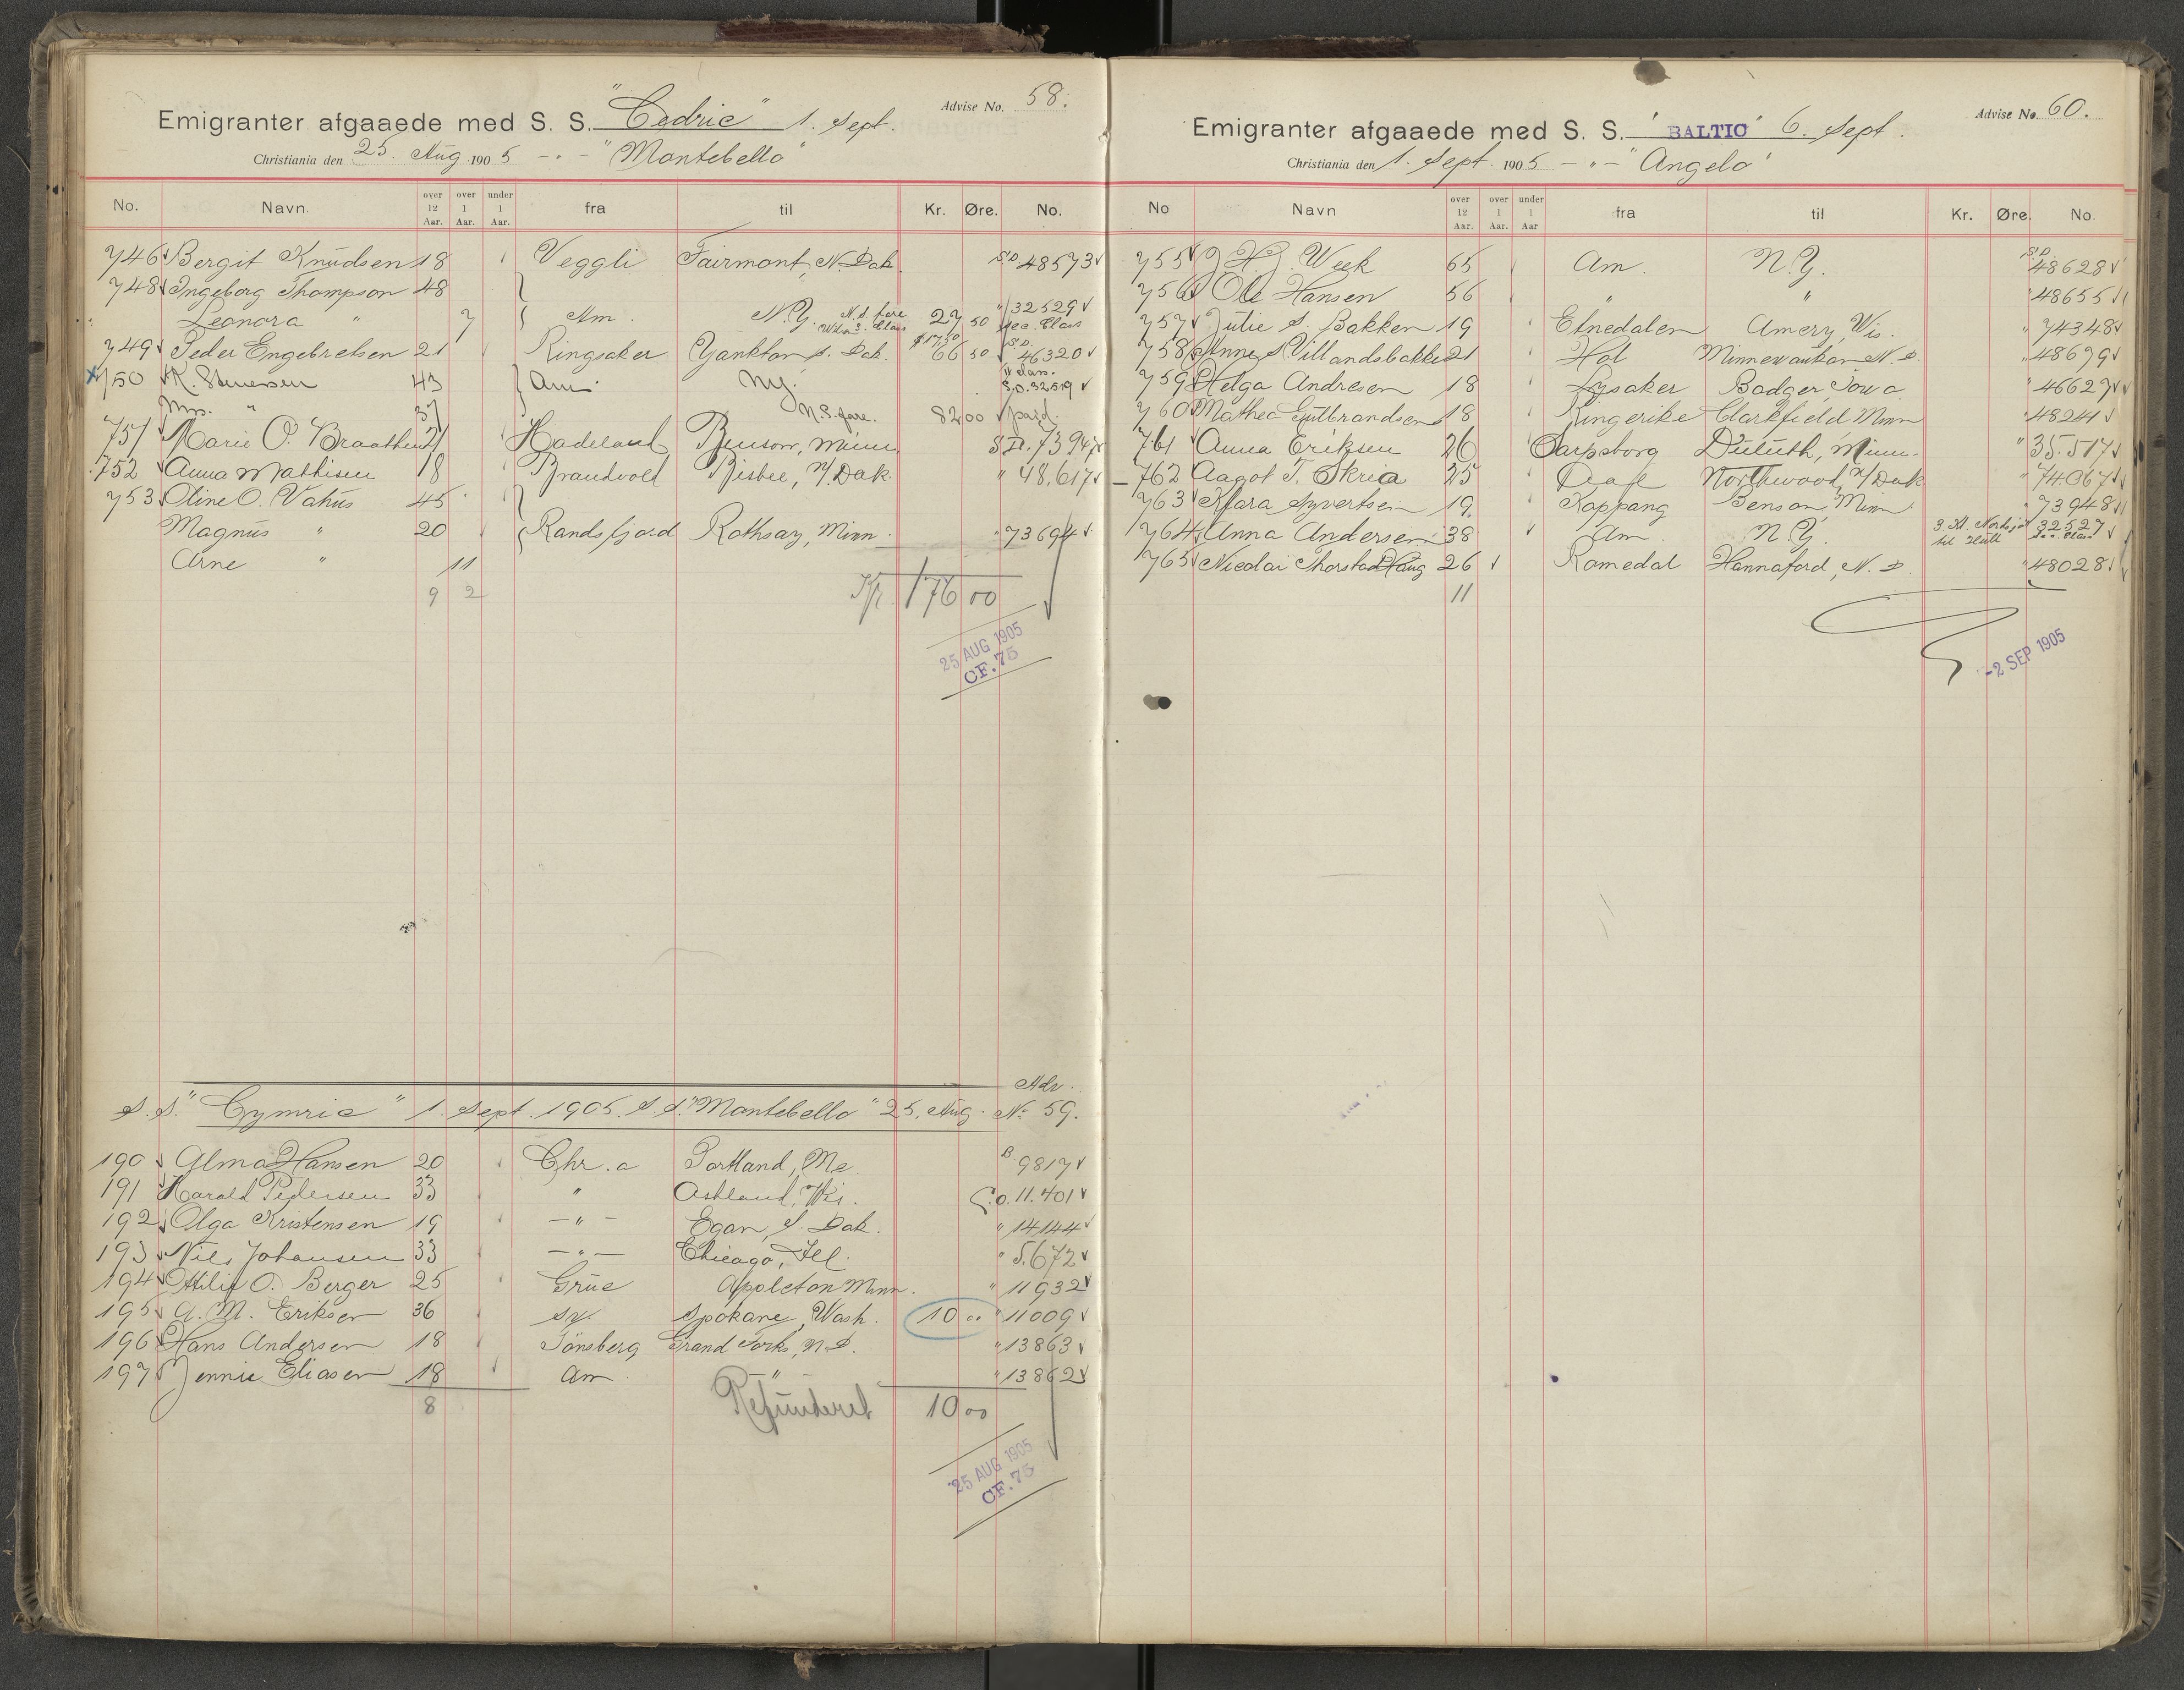 Advise No. 58.
Emigranter afgaaede med S. S. "Cedric" 1. Sept.
Christiania den 25. Aug 1905 - " - "Montebello"
No. Navn. over 12 Aar. over 1 Aar. under 1 Aar. fra til Kr. Øre. No.
746 Bergit Knudsen 18 Veggli Fairmont, N. Dak. S.D. 48573
748 Ingeborg Thompson 48
" Leonora " 7 Am. N.Y. N.S. fare 2. Class 27 50 " 32529 sec. Class
749 Peder Engebretsen 21 Ringsaker Yankton S. Dak. $17.50 66 50 S.D. 46320
x 750 K. Stenersen 43 Am. N.Y. II class. S.O. 32519
Mrs. " 37 N.S. fare. 82 00 paid.
751 Marie O. Braathen Hadeland Benson, Minn S.D. 7394
752 Anna Mathisen 18 Brandvold Bisbee, N/Dak. " 48.617
753 Oline O. Vahus 45
Magnus " 20 Randsfjord Rothsay, Minn. " 73694
Arne " 11
9 2 Kr. 176 00
25 AUG 1905
CF. 75
Adv.
S.S. "Cymric" 1. Sept. 1905. S.S. "Montebello" 25. Aug. No 59.
190 Alma Hansen 20 Chr.a Portland, Me. B. 9817
191 Harald Pedersen 33 " Ashland, Wis. S.O. 11.401
192 Olga Kristensen 19 - " - Egan, S. Dak. " 14144
193 Nils Johansen 33 - " - Chicago, Ill. " 5.672
194 Otilie O. Berger 25 Grue Appleton Minn. " 11932
195 A. M. Eriksen 36 Sv. Spokane, Wash. 10 00 " 11009
196 Hans Andersen 18 Tönsberg Grand Forks, N.D. " 13863
197 Jennie Eliasen 18 Am " " 13862
8 Refunderet 10 00
25 AUG 1905
CF. 75
Advise No. 60.
Emigranter afgaaede med S. S. "BALTIC" 6. Sept.
Christiania den 1. Sept. 1905 - " - "Angelo"
No Navn over 12 Aar. over 1 Aar. under 1 Aar fra til Kr. Øre. No.
755 H. J. Week 65 Am. N.Y. S.D. 48628
756 Ole Hansen 56 " " " 48655
757 Julie S. Bakken 19 Etnedalen Amery, Wis. " 74348
758 Anne S. Villandsbakke 21 Hol Minnewaukan N.D. " 48679
759 Helga Andresen 18 Lysaker Badger, Iowa " 46627
760 Mathea Gulbrandsen 18 Ringerike Clarkfield Minn " 48241
761 Anna Eriksen 26 Sarpsborg Duluth, Minn. " 35.517
762 Aagot T. Skria 25 Northwood, N/Dak " 74067
763 Klara Syvertsen 19. Koppang Benson Minn " 73948
764 Anna Andersen 38 Am N.Y. 3. Kl. til Hull 32527 sec. Class
765 Nicolai Thorstad Haug 26 Romedal Hannaford, N.D. " 48028
11
-2 SEP 1905